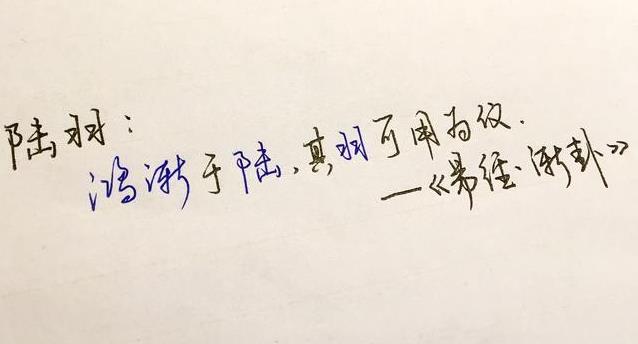 陆羽：
鸿渐于陆，其羽可用为仪.
—《易经·渐卦》